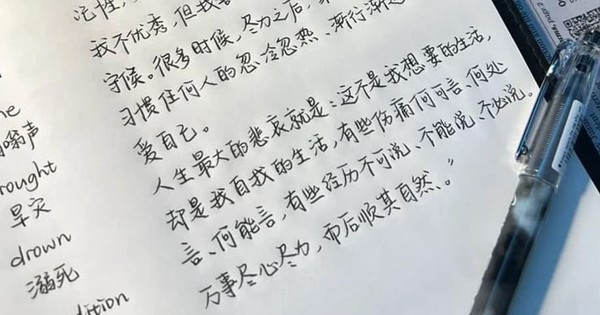 性，
我不优秀，但我
守候。很多时候，尽力之后，
习惯任何人的忽冷忽热、渐行渐
爱自己。
人生最大的悲哀就是：这不是我想要的生活，
却是我自我的生活，有些伤痛何可言、何处
言、何能言，有些经历不可说、不能说、不必说。
万事尽心尽力，而后顺其自然、。”
嗡声
rought
旱灾
drown
溺死
dition